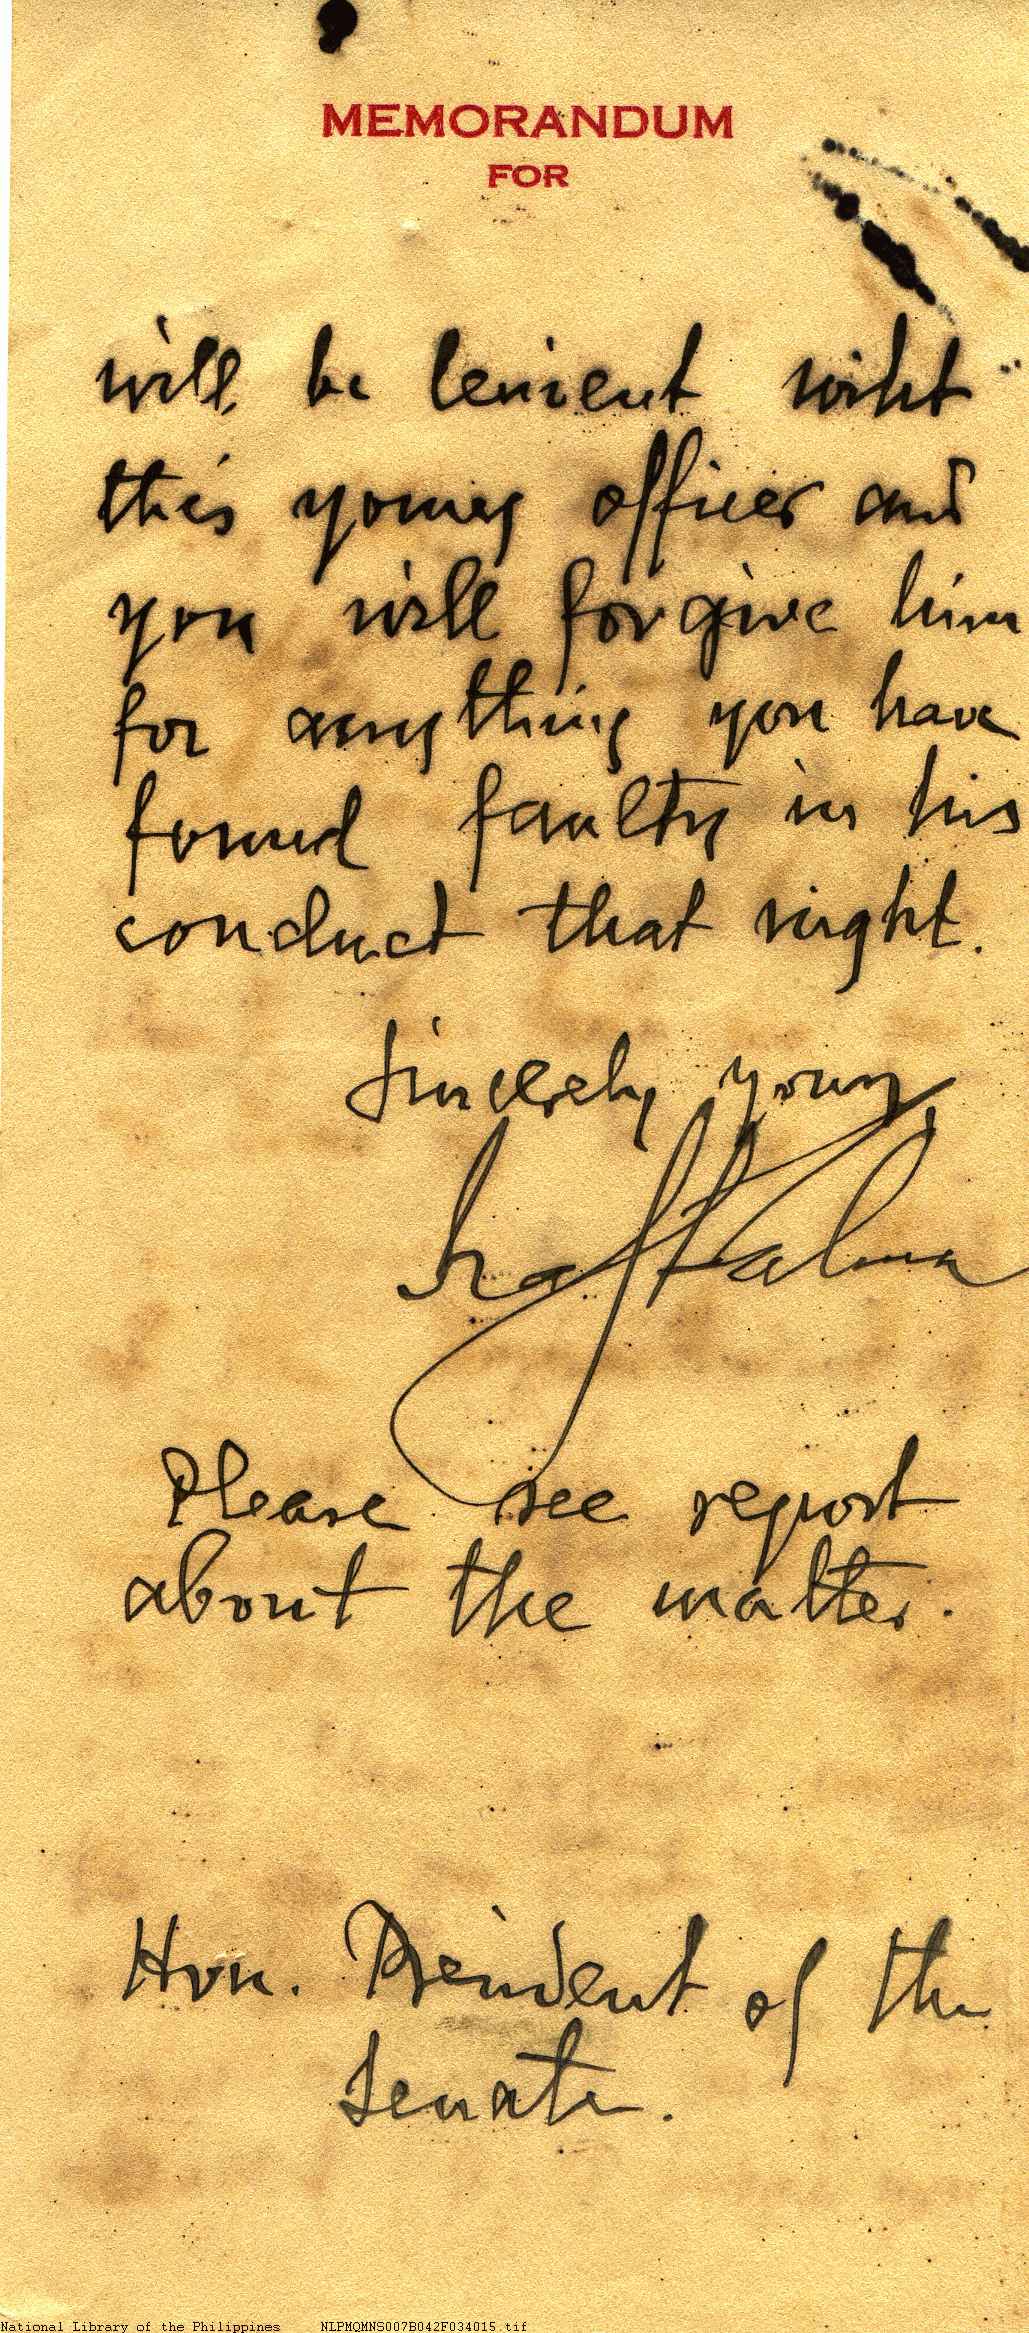 MEMORANDUM
FOR
will be lenient with
this young officer and
you will forgive him
for anything you have
found faulty in his
conduct that night.
Sincerely yours,
Please see report
about the matter.
Hon. President of the
Senate.
National Library of the Philippines NLPMQMNS007B042F034015.tif